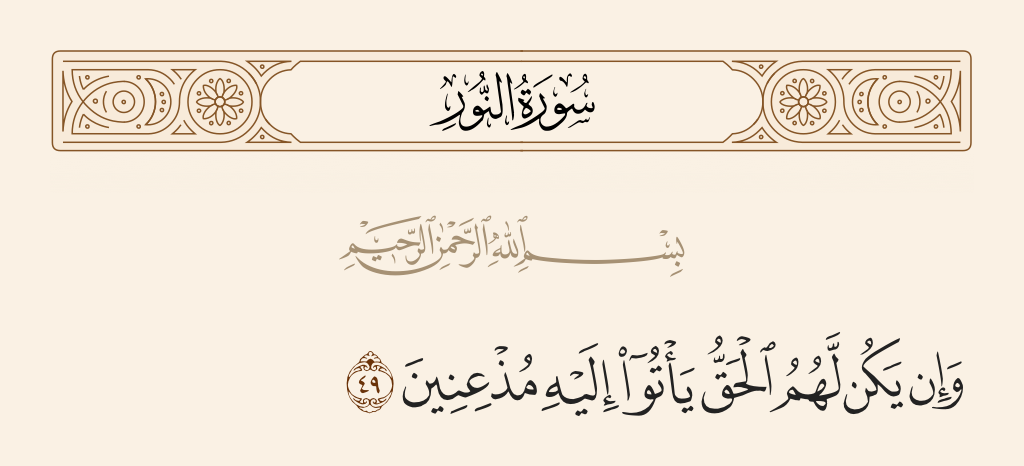 سُورَةُ النُّورِ
بِسْمِ ٱللَّهِ ٱلرَّحْمَٰنِ ٱلرَّحِيمِ
وَإِن يَكُن لَّهُمُ ٱلْحَقُّ يَأْتُوٓا۟ إِلَيْهِ مُذْعِنِينَ ٤٩